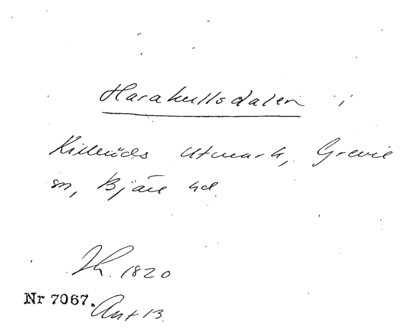 Harakullsdalen i
Killeröds Utmark, Grevie
sn, Bjäre hd.
Th. 1820
Nr 7067. Ant 13.